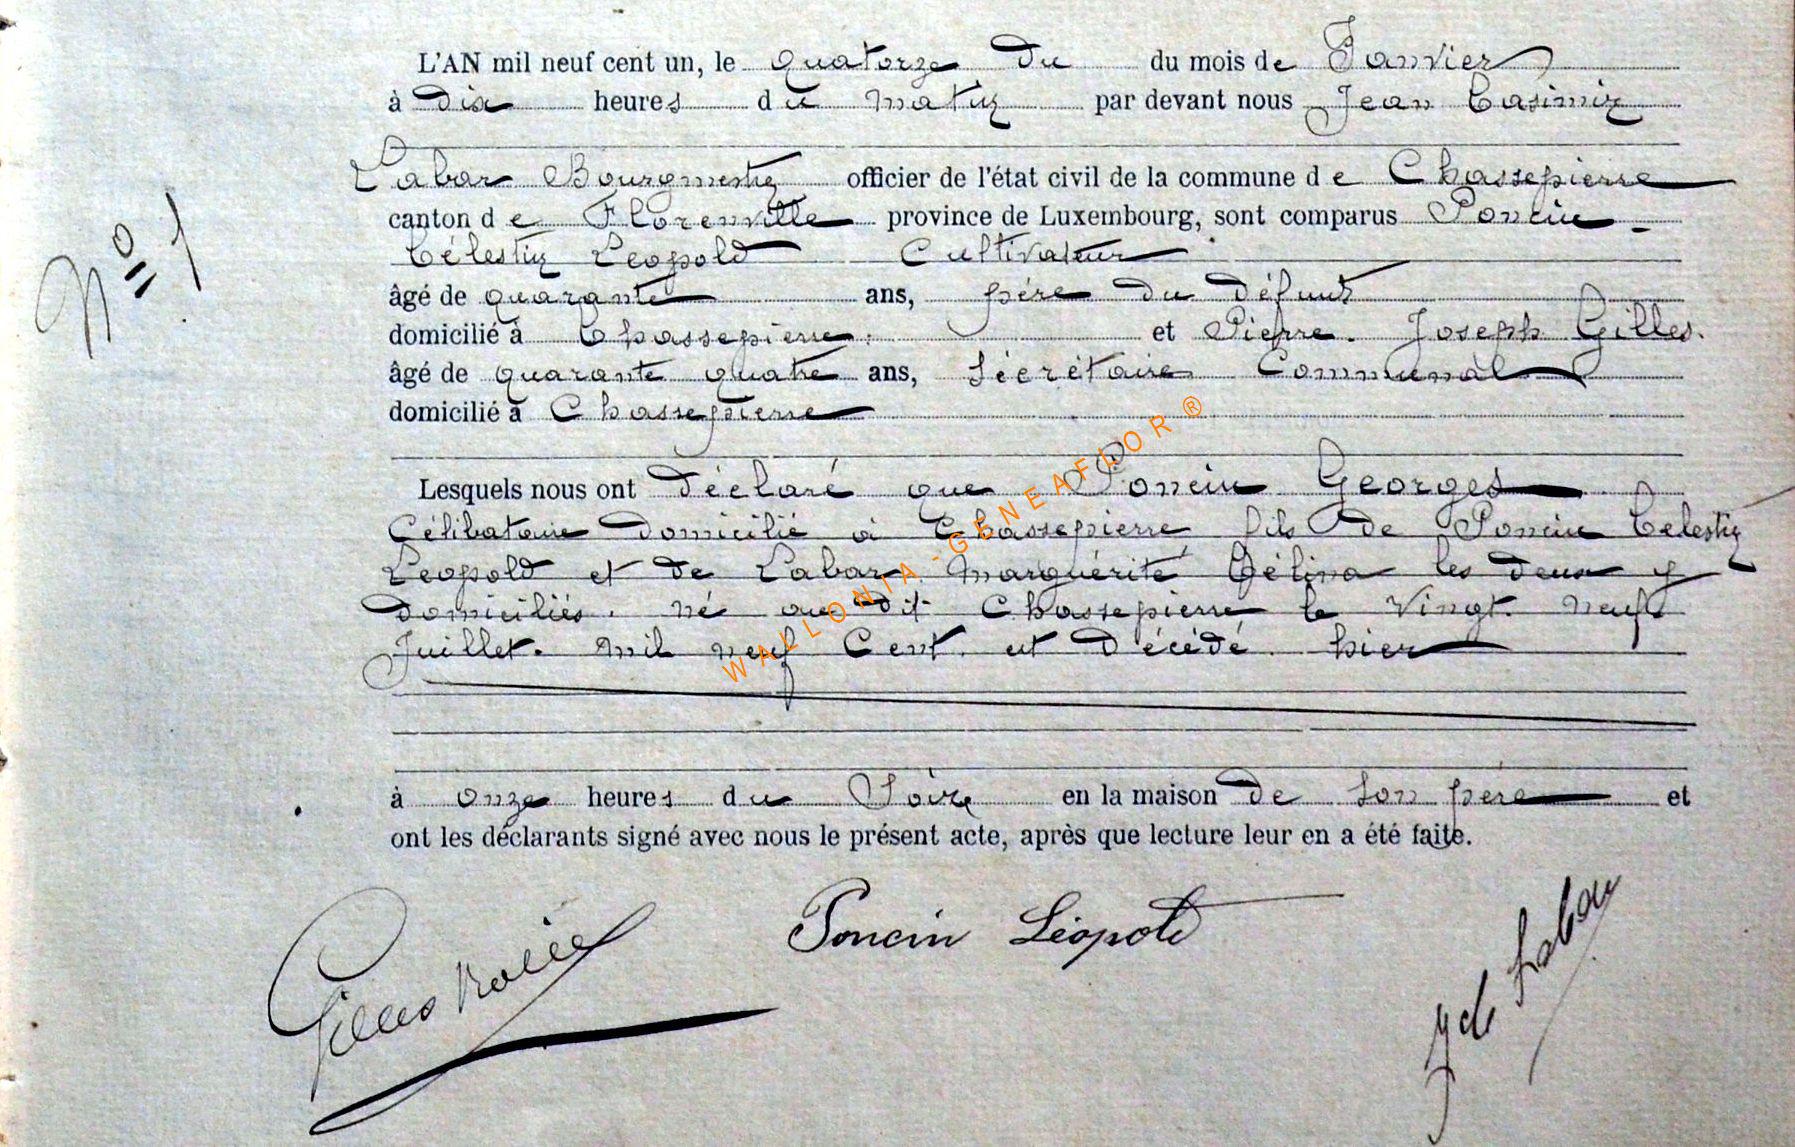 L'AN mil neuf cent un, le quatorze du du mois de Janvier
à dix heures du matin par devant nous Jean Casimir
Labar Bourgmestre officier de l'état civil de la commune de Chassepierre
canton de Florenville province de Luxembourg, sont comparus Poncin
Célestin Leopold Cultivateur
Nº 1
âgé de quarante ans, pére du défunt
domicilié à Chassepierre et Pierre Joseph Gilles.
âgé de quarante quatre ans, Sécrétaire Communal
domicilié à Chassepierre
Lesquels nous ont déclaré que Poncin Georges
Célibataire domicilié à Chassepierre fils de Poncin Celestin
Leopold et de Labar Marguérite Célina les deux y
domiciliés. né au dit Chassepierre le vingt neuf
Juillet. mil neuf Cent et décédé hier
à onze heures du Soire en la maison de son pére et
ont les déclarants signé avec nous le présent acte, après que lecture leur en a été faite.
WALLONIA-GENEAFLOR®
Gilles Poncin Léopold Labar